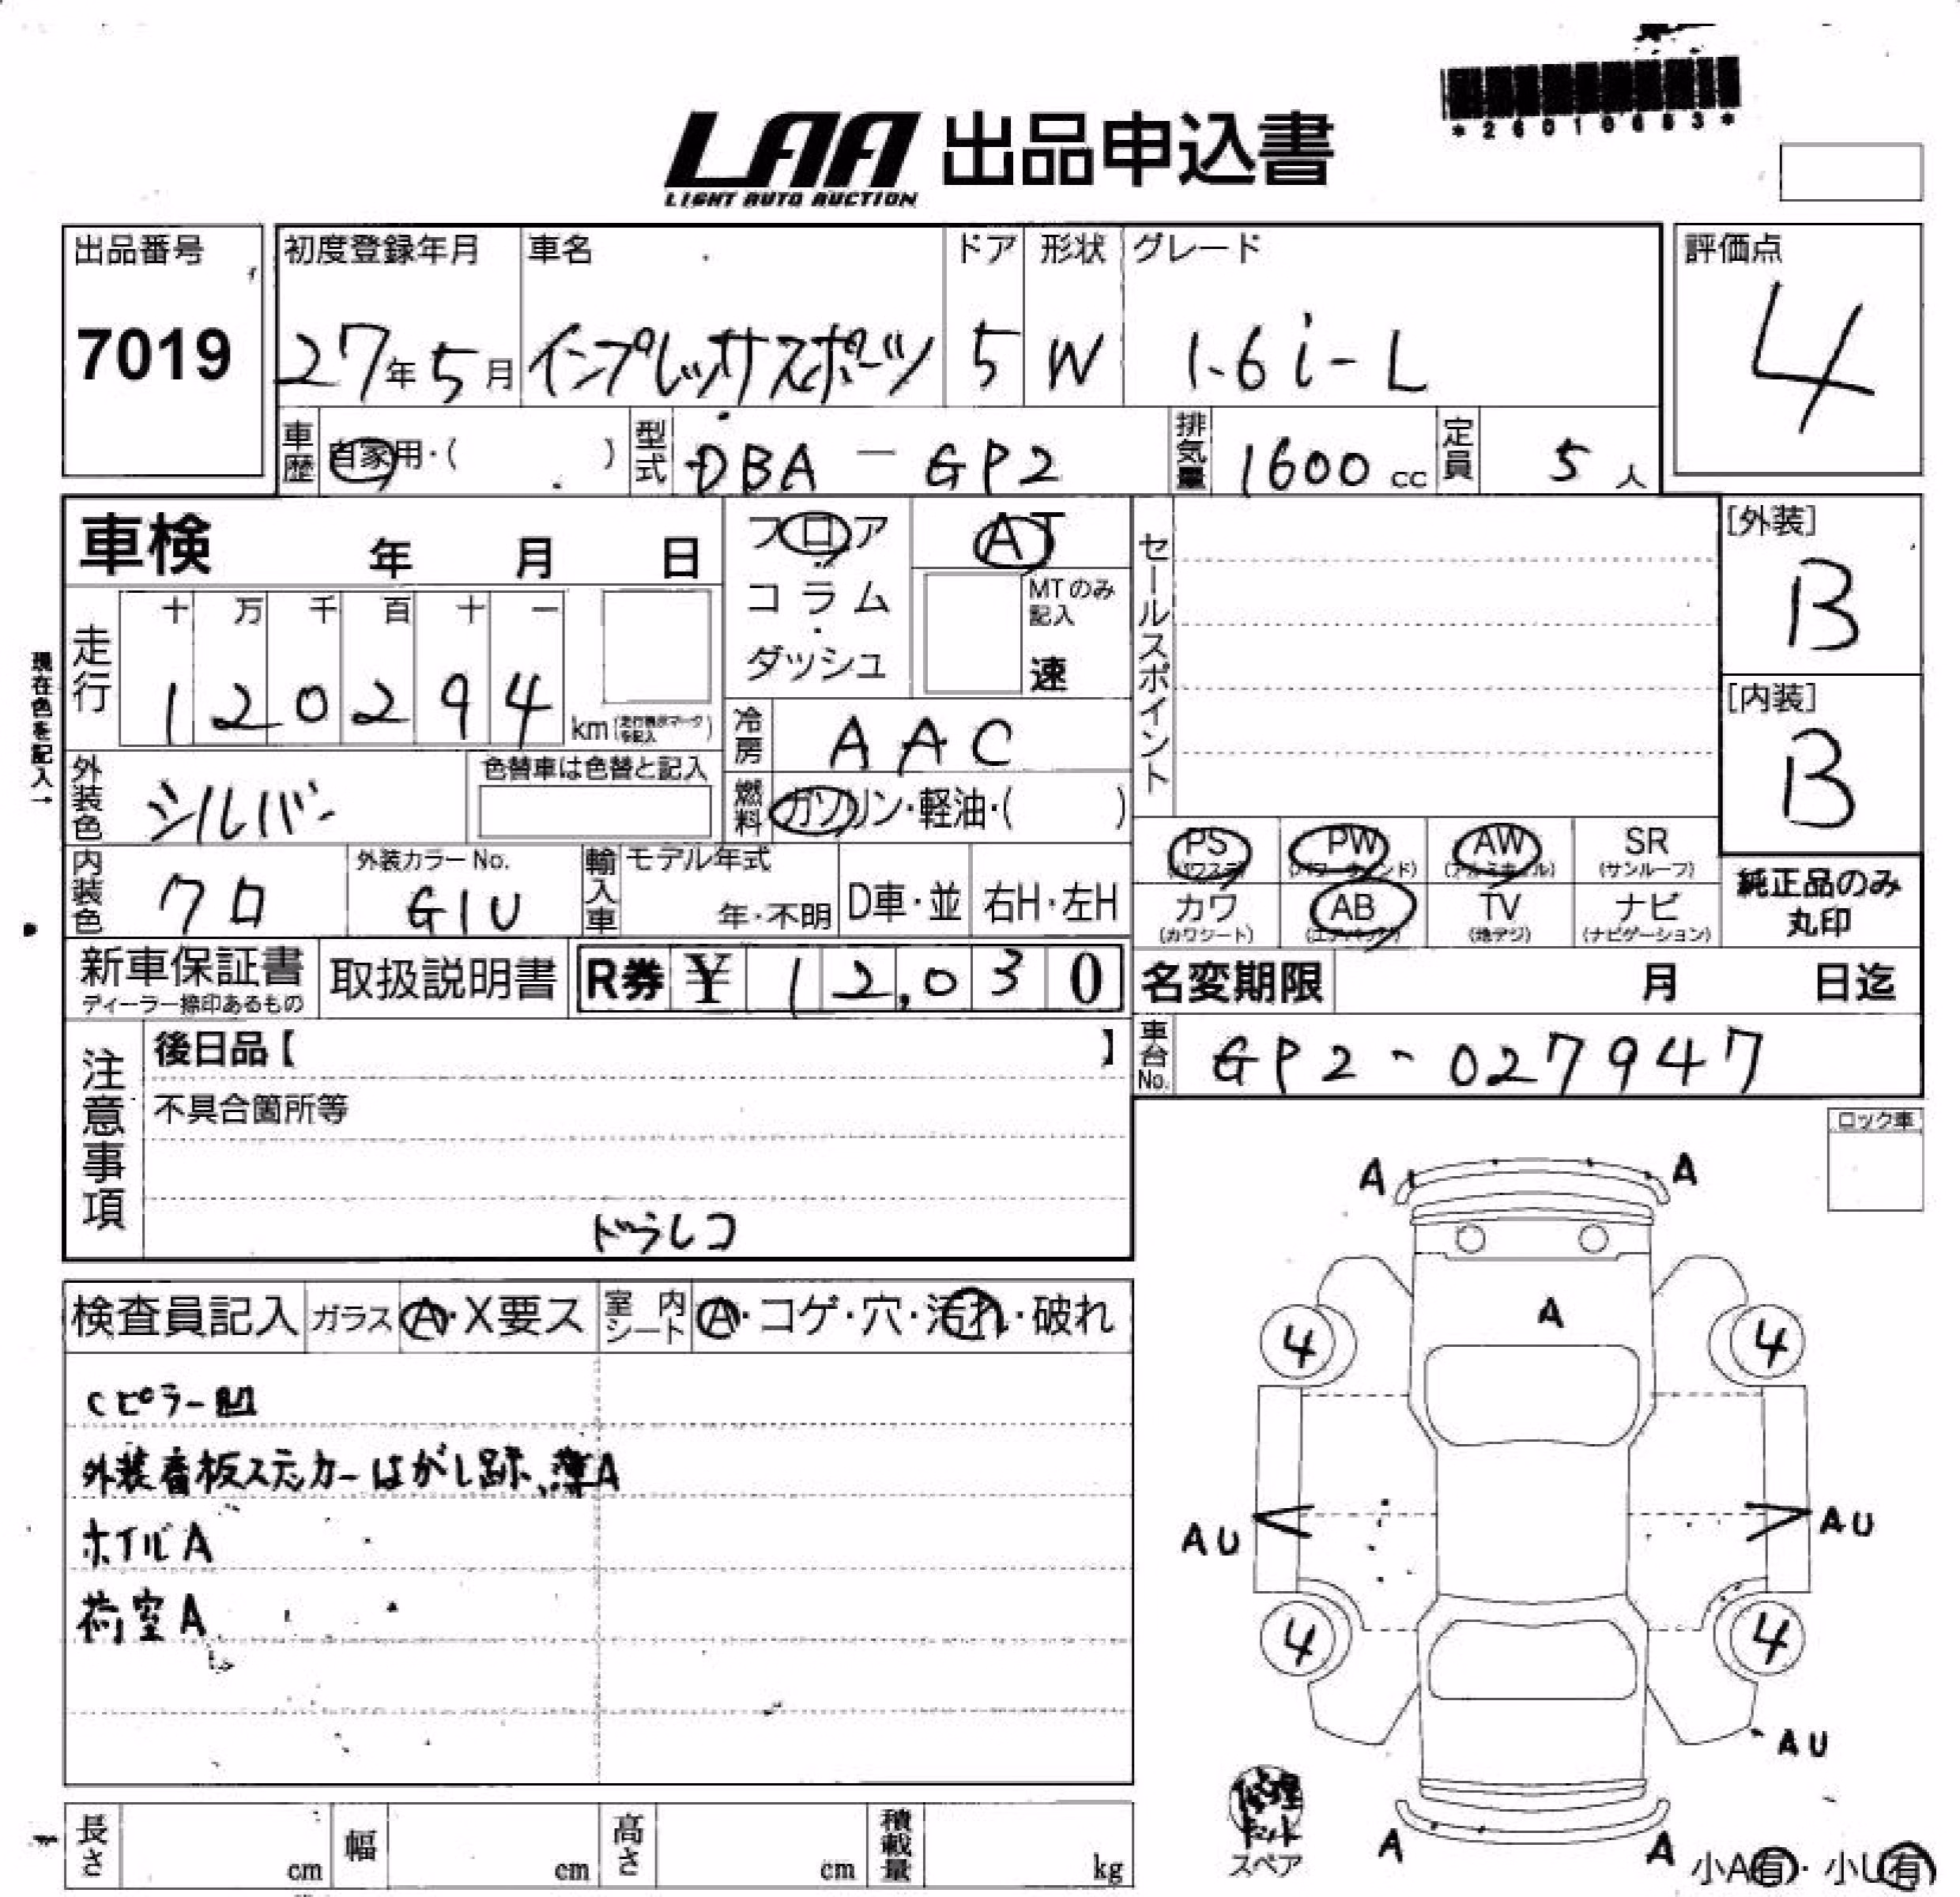 *26010653*
LAA 出品申込書
LIGHT AUTO AUCTION
出品番号 初度登録年月 車名 ドア 形状 グレード 評価点
7019 27年5月 インプレッサスポーツ 5 W 1.6i-L 4
車歴 自家用・( ) 型式 DBA-GP2 排気量 1600cc 定員 5人
車検 年 月 日 フロア AT セールスポイント [外装]
コラム MTのみ記入 B
ダッシュ 速
現在色を記入→
走行 十 万 千 百 十 一
120294 km (走行表示マークを記入)
冷房 AAC [内装]
B
外装色 シルバー 色替車は色替と記入 燃料 ガソリン・軽油・( )
PS (パワステ) PW (パワーウィンド) AW (アルミホイル) SR (サンルーフ)
カワ (カワシート) AB (エアバッグ) TV (地デジ) ナビ (ナビゲーション)
純正品のみ
丸印
内装色 クロ 外装カラーNo. G1U 輸入車 モデル年式 年・不明 D車・並 右H・左H
新車保証書 取扱説明書 R券 ¥12,030 名変期限 月 日迄
ディーラー捺印あるもの
車台No. GP2-027947
注意事項 後日品【 】
不具合箇所等
ドラレコ
ロック車
検査員記入 ガラス A・X要ス 室内シート A・コゲ・穴・汚れ・破れ
Cピラー凹
外装看板ステッカーはがし跡、薄A
ホイルA
荷室A
A A
A
4 4
AU AU
4 4
AU
A A
修理キット
スペア
小A有・小U有
長さ cm 幅 cm 高さ cm 積載量 kg